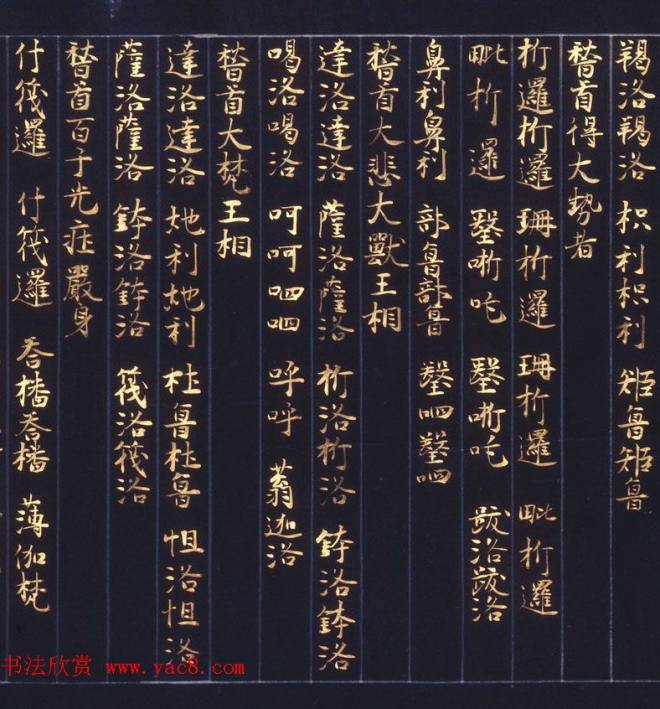 羯洛羯洛 枳利枳利 矩魯矩魯
稽首得大勢者
桁邏桁邏 珊桁邏 珊桁邏 毗桁邏
毗桁邏 墼唽吒 墼唽吒 跋洛跋洛
鼻利鼻利 部魯部魯
稽首大悲大獸王相
達洛達洛 薩洛薩洛 桁洛桁洛 鉢洛鉢洛
喝洛喝洛 呵呵呬呬 呼呼 蓊迦洛
稽首大梵王相
達洛達洛 地利地利 杜魯杜魯 怛洛怛洛
薩洛薩洛 鉢洛鉢洛 筏洛筏洛
稽首百千光莊嚴身
什筏邏 什筏邏 苔橎苔橎 薄伽梵
书法欣赏 www.yac8.com